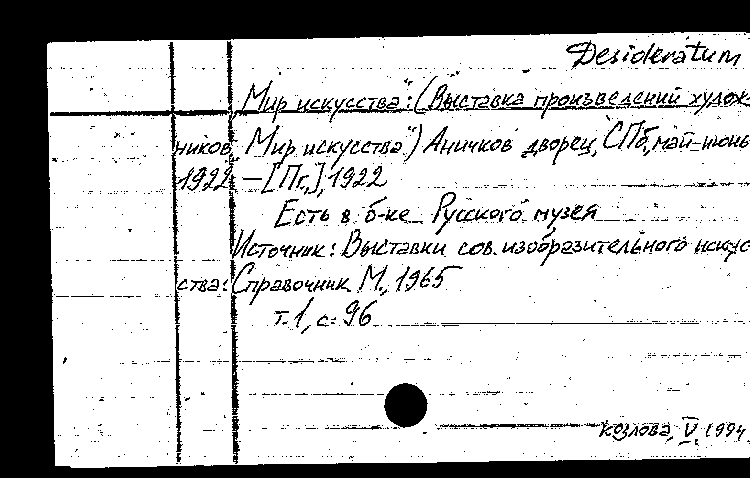 Desideratum
"Мир искусства": (Выставка произведений худож-
ников "Мир искусства") Аничков дворец, СПб, май-июнь
1922. — [Пг.], 1922
Есть в б-ке Русского музея
Источник: Выставки сов. изобразительного искус-
ства: Справочник М., 1965
т. 1, с. 96
Козлова, V, 1994